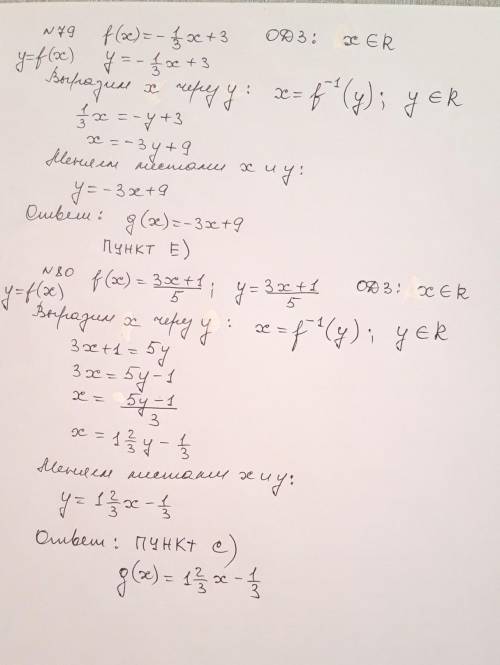 №79 f(x) = -1/3 x + 3 ОДЗ: x ∈ R
y = f(x) y = -1/3 x + 3
Выразим x через y: x = f⁻¹(y); y ∈ R
1/3 x = -y + 3
x = -3y + 9
Меняем местами x и y:
y = -3x + 9
Ответ: g(x) = -3x + 9
ПУНКТ E)
№80 f(x) = (3x+1)/5; y = (3x+1)/5 ОДЗ: x ∈ R
y = f(x)
Выразим x через y: x = f⁻¹(y); y ∈ R
3x + 1 = 5y
3x = 5y - 1
x = (5y-1)/3
x = 1 2/3 y - 1/3
Меняем местами x и y:
y = 1 2/3 x - 1/3
Ответ: ПУНКТ C)
g(x) = 1 2/3 x - 1/3